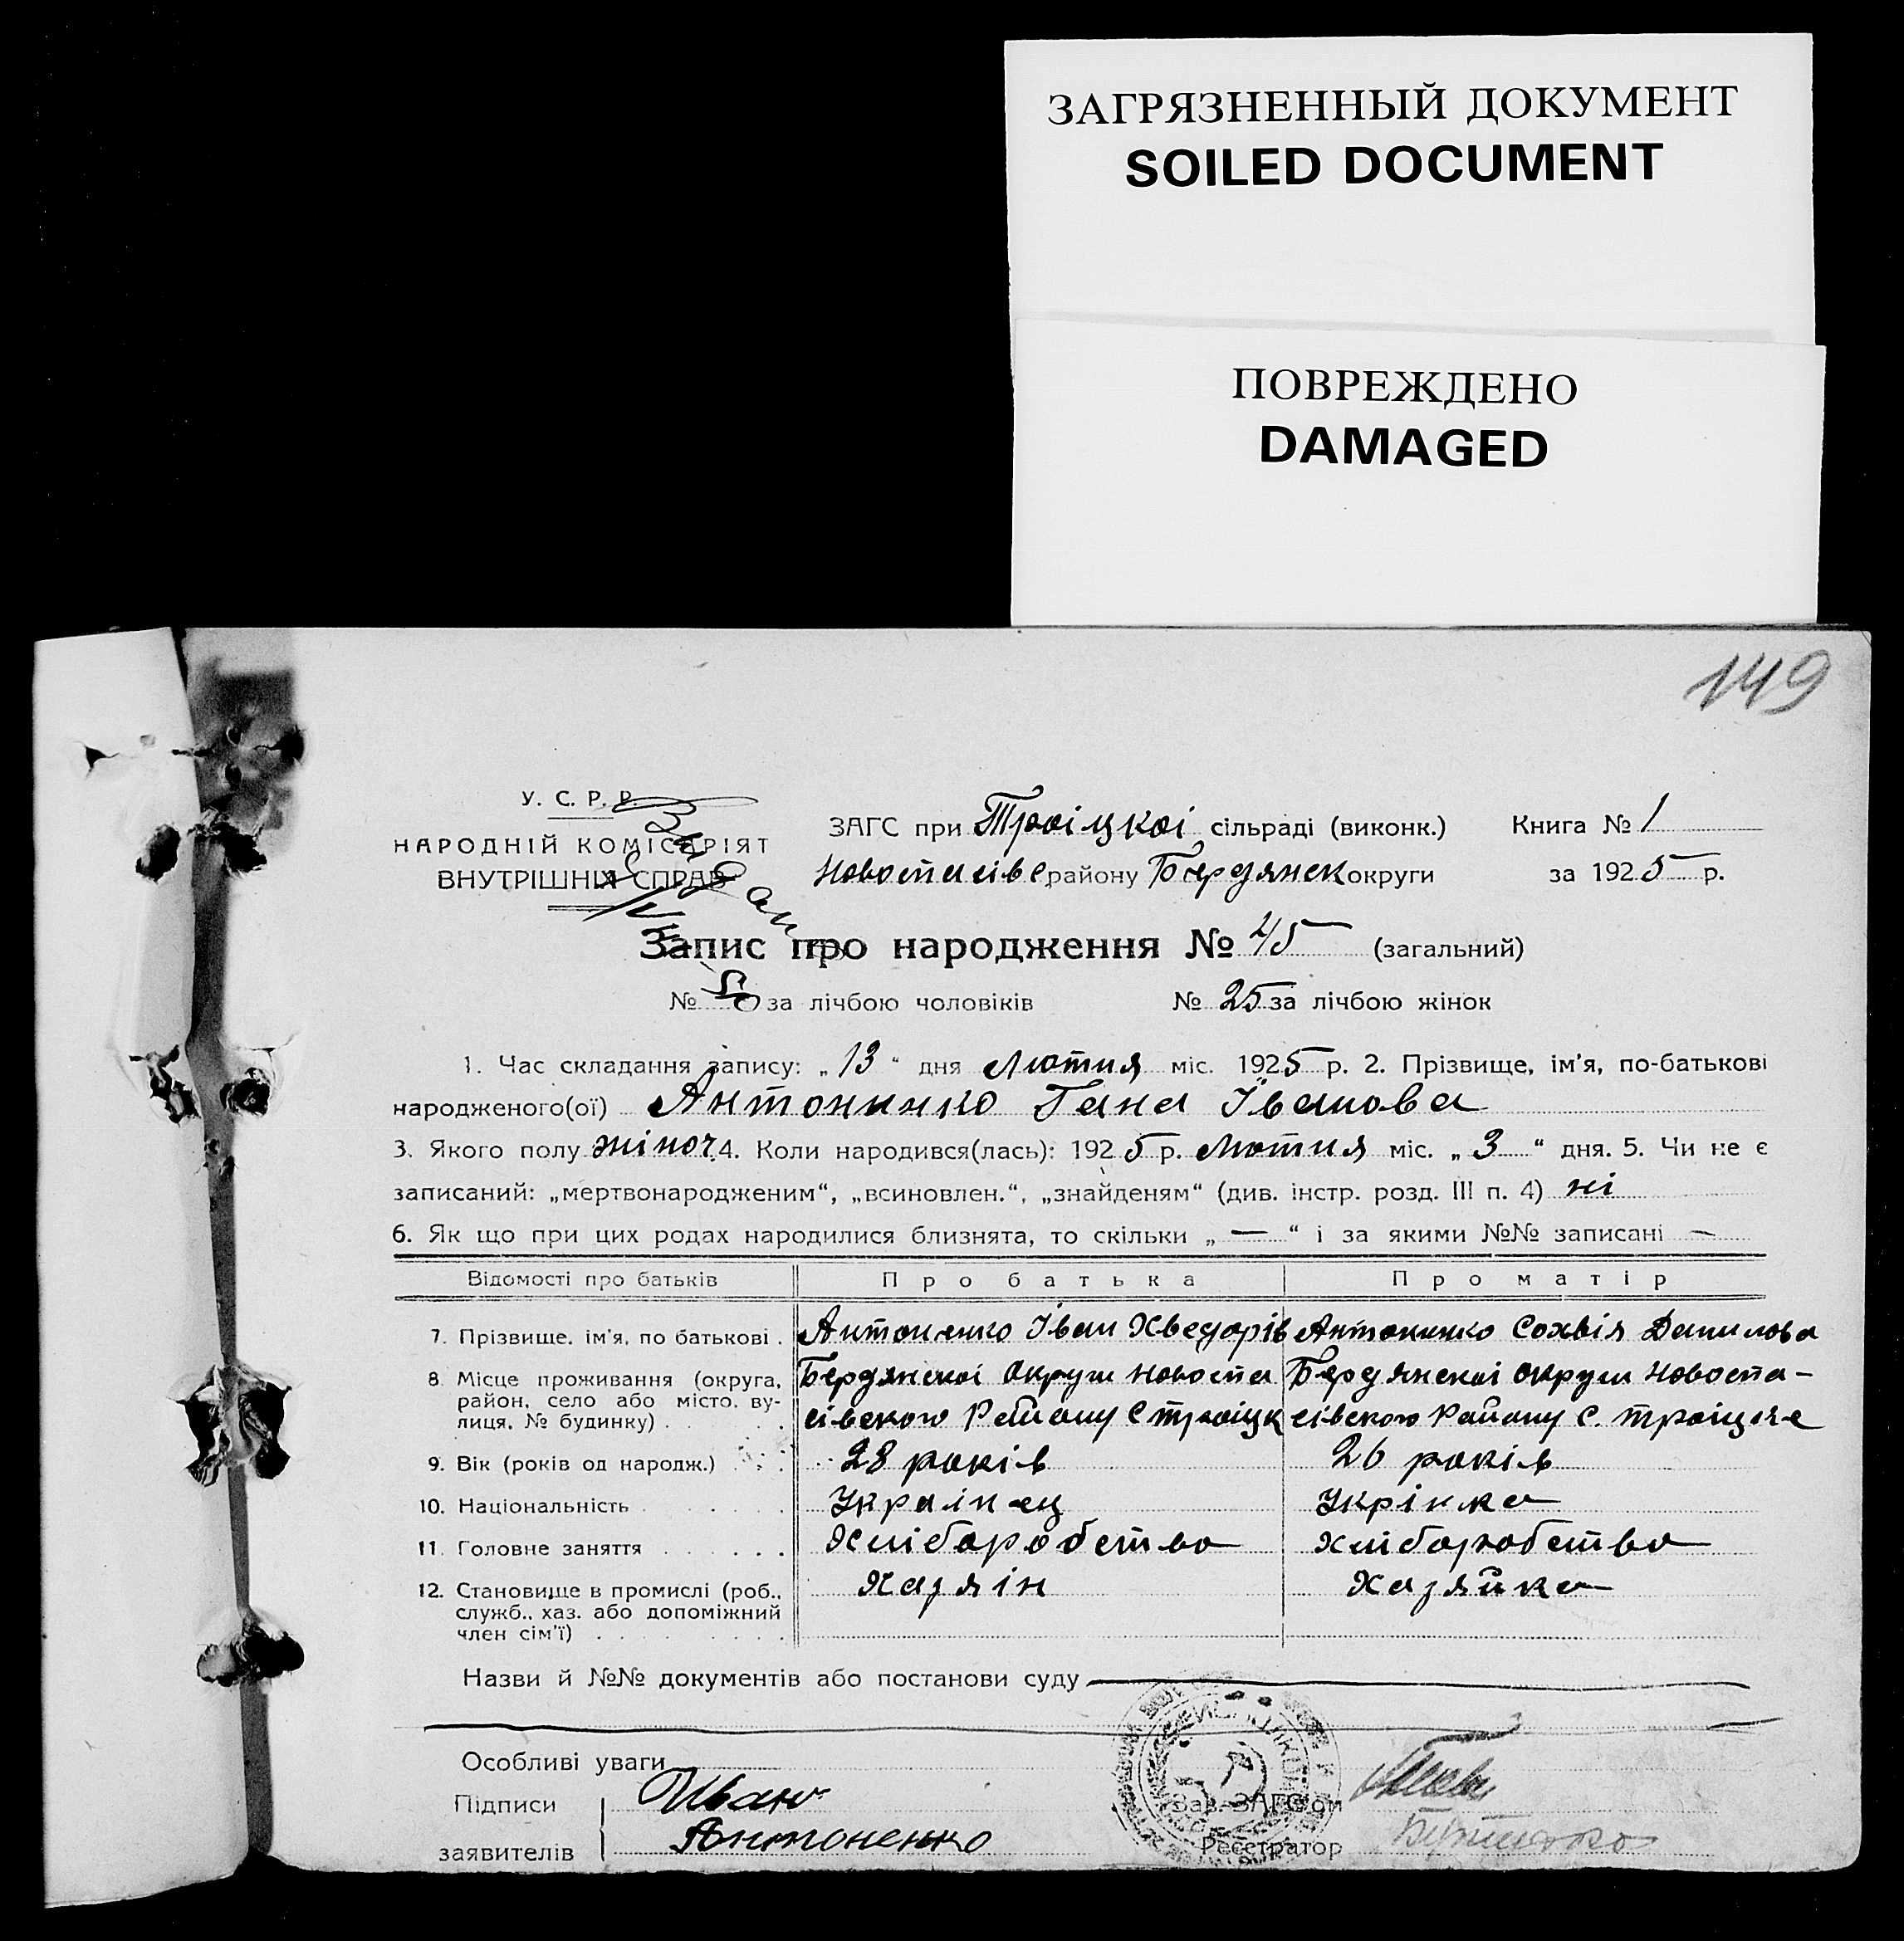 ЗАГРЯЗНЕННЫЙ ДОКУМЕНТ
SOILED DOCUMENT
ПОВРЕЖДЕНО
DAMAGED
149
У. С. Р. Р.
НАРОДНІЙ КОМІСАРІЯТ
ВНУТРІШНІХ СПРАВ
ЗАГС при Троіцкоі сільраді (виконк.) Книга № 1
Новоспасівс району Бердянск округи за 1925 р.
Запис про народження № 45 (загальний)
№ за лічбою чоловіків № 25 за лічбою жінок
1. Час складання запису: „13“ дня Лютия міс. 1925 р. 2. Прізвище, ім'я, по-батькові
народженого(ої) Антоненко Гана Іванова
3. Якого полу жіноч. 4. Коли народився(лась): 1925 р. Лютия міс. „3“ дня. 5. Чи не є
записаний: „мертвонародженим“, „всиновлен.“, „знайденям“ (див. інстр. розд. III п. 4) ні
6. Як що при цих родах народилися близнята, то скільки „—“ і за якими №№ записані —
Відомості про батьків Про батька Про матір
7. Прізвище, ім'я, по батькові . Антоненко Іван Хведорів Антоненко Сохвія Данилова
8. Місце проживання (округа, район, село або місто, вулиця, № будинку) . Бердянскоі Округи Новоспа Бердянскоі округи Новоспа-
сівского Району С Троіцк сівского Району с. Троіцке
9. Вік (років од народж.) . 28 років 26 років
10. Національність . Українец Укрінка
11. Головне заняття . Хліборобство Хліборобство
12. Становище в промислі (роб., служб., хаз. або допоміжний член сім'ї) . Хазяін Хазяйка
Назви й №№ документів або постанови суду
Особливі уваги
Підписи Иван
заявителів Антоненко
Зав. ЗАГС'ом
Реєстратор